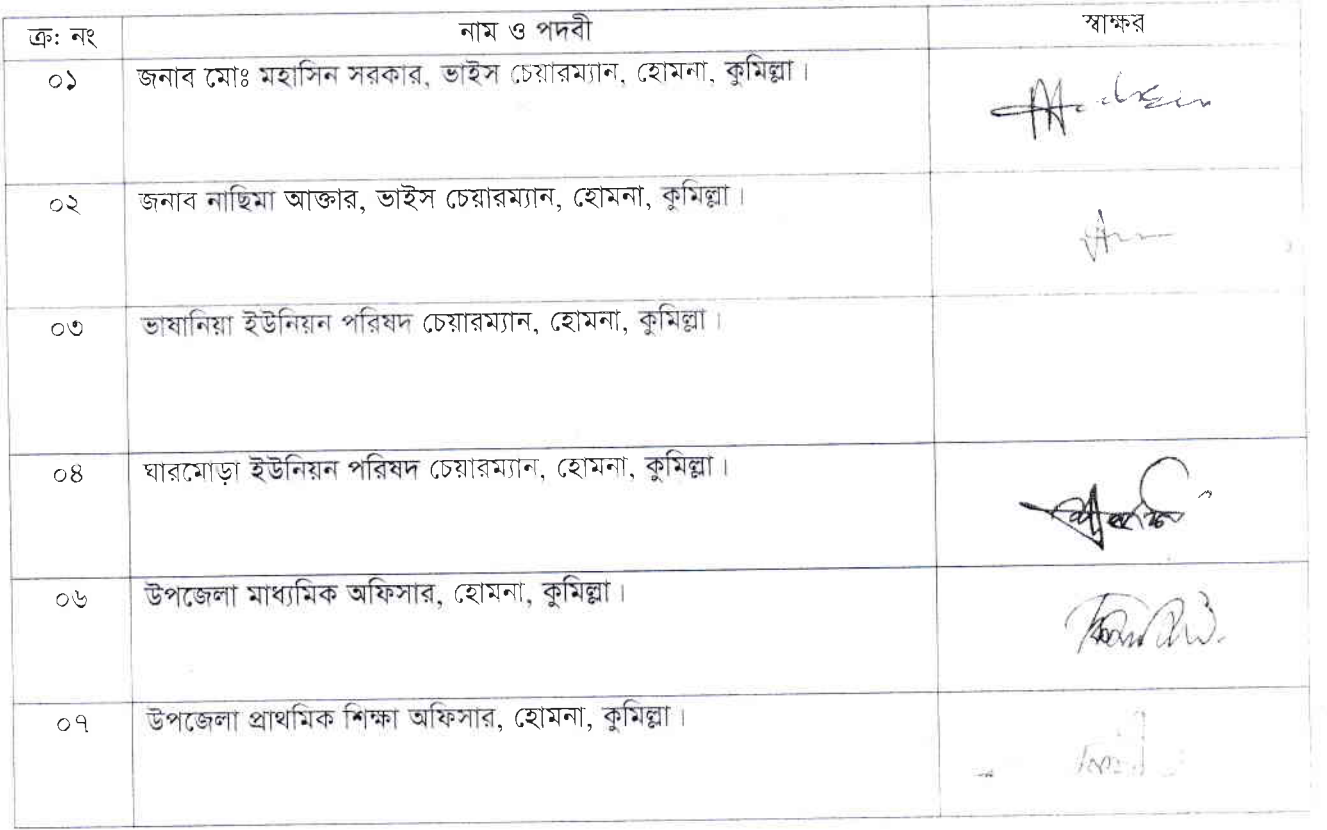 ক্র: নং নাম ও পদবী স্বাক্ষর
০১ জনাব মোঃ মহাসিন সরকার, ভাইস চেয়ারম্যান, হোমনা, কুমিল্লা।
০২ জনাব নাছিমা আক্তার, ভাইস চেয়ারম্যান, হোমনা, কুমিল্লা।
০৩ ভাষানিয়া ইউনিয়ন পরিষদ চেয়ারম্যান, হোমনা, কুমিল্লা।
০৪ ঘারমোড়া ইউনিয়ন পরিষদ চেয়ারম্যান, হোমনা, কুমিল্লা।
০৬ উপজেলা মাধ্যমিক অফিসার, হোমনা, কুমিল্লা।
০৭ উপজেলা প্রাথমিক শিক্ষা অফিসার, হোমনা, কুমিল্লা।